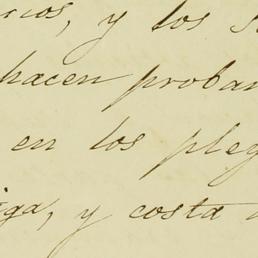 rios, y los s
hacen proban
en los pleg
iga, y costa